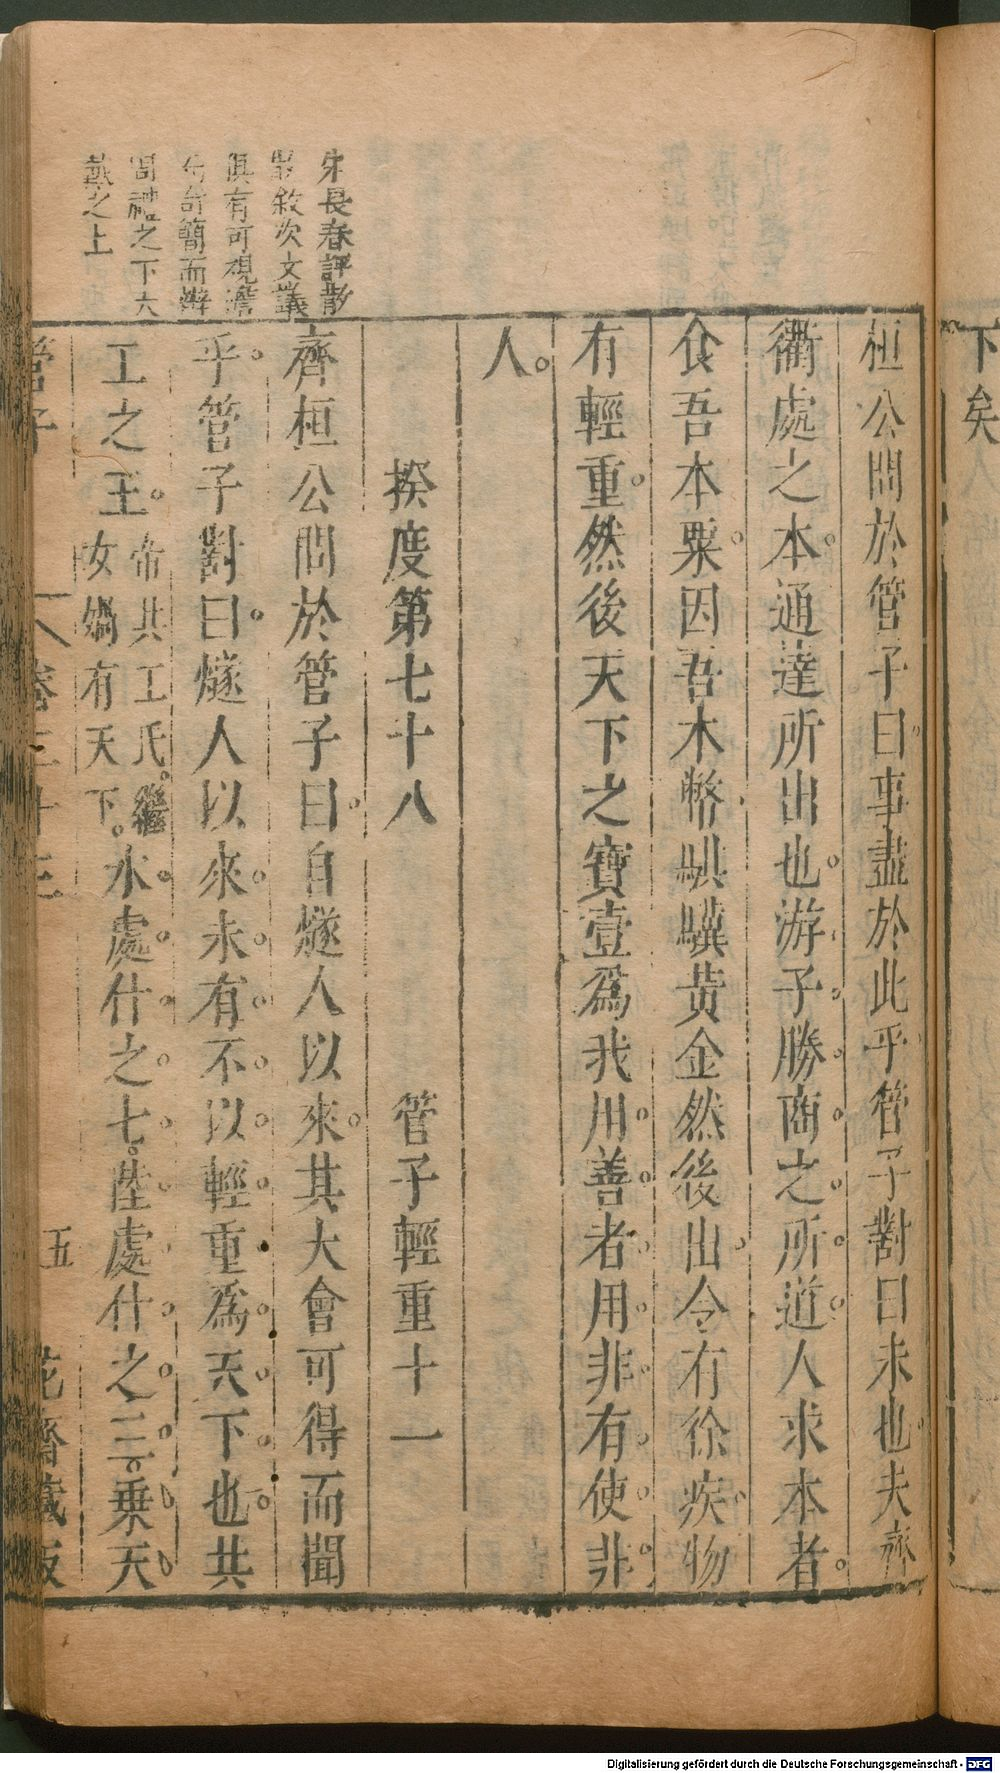 下矣
桓公問於管子曰事盡於此乎管子對曰未也夫齊
衢處之本通達所出也游子勝商之所道人求本者
食吾本粟因吾本幣騏驥黃金然後出令有徐疾物
有輕重然後天下之寶壹爲我用善者用非有使非
人
揆度第七十八 管子輕重十一
朱長春評散
敘次文議
俱有可視
奇簡而
周禮之下六
之上
齊桓公問於管子曰自燧人以來其大會可得而聞
乎管子對曰燧人以來未有不以輕重爲天下也共
工之王帝共工氏繼女媧有天下水處什之七陸處什之三乘天
管子 卷二十三 五 花齋藏版
Digitalisierung gefördert durch die Deutsche Forschungsgemeinschaft - DFG